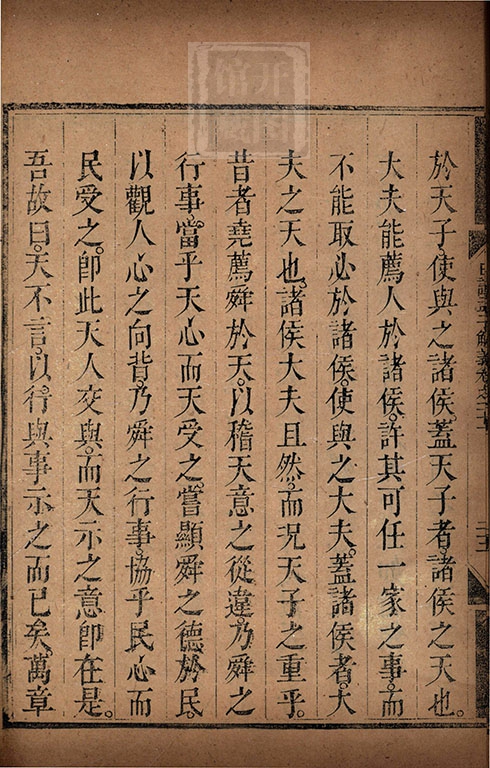 於天子使與之諸侯。蓋天子者。諸侯之天也。
大夫能薦人於諸侯。許其可任一家之事。而
不能取必於諸侯。使與之大夫。蓋諸侯者。大
夫之天也。諸侯大夫且然。而況天子之重乎。
昔者堯薦舜於天。以稽天意之從違。乃舜之
行事。當乎天心而天受之。嘗顯舜之德於民。
以觀人心之向背。乃舜之行事。協乎民心而
民受之。卽此天人交與。而天示之意卽在是。
吾故曰。天不言。以行與事示之而已矣。萬章